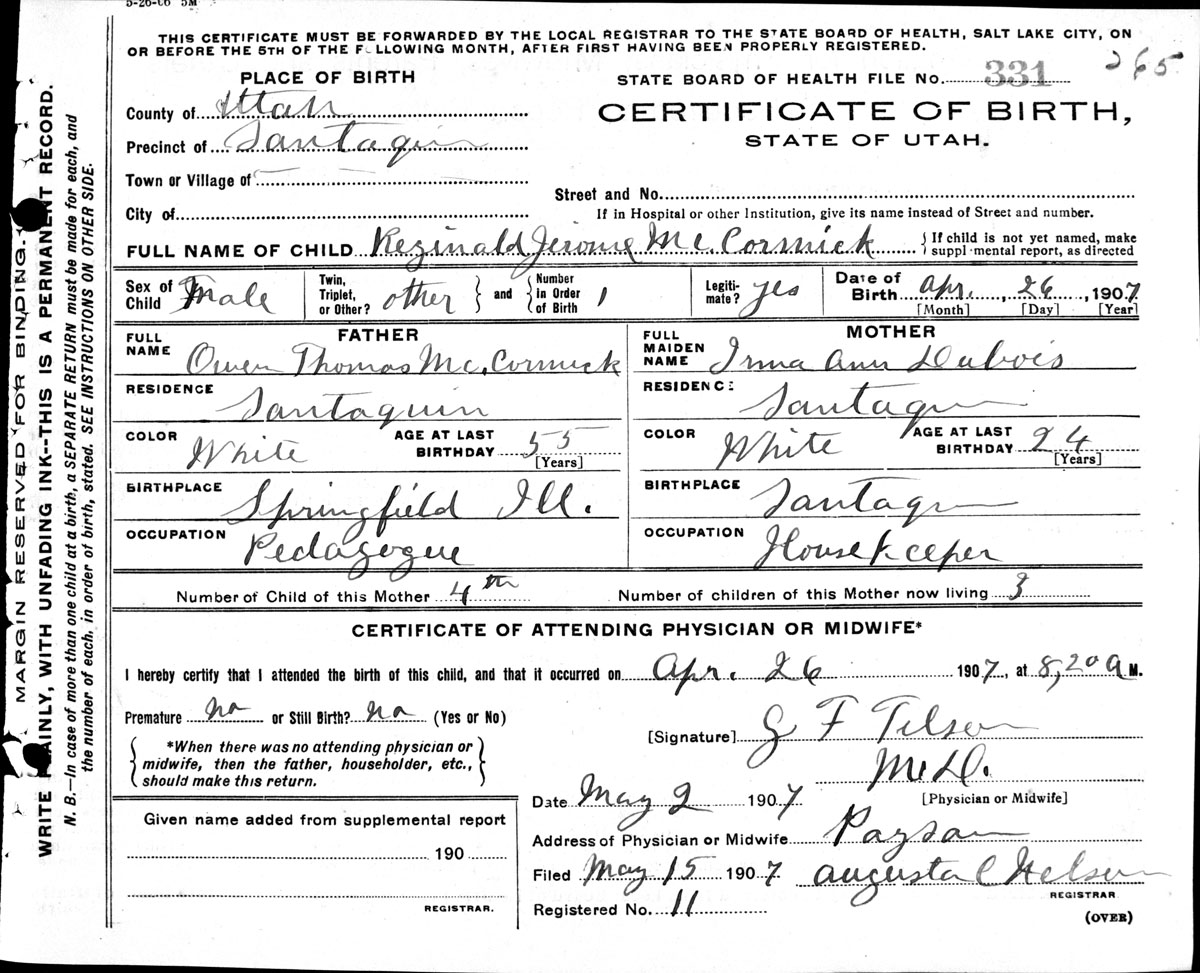 5-26-06 5M
THIS CERTIFICATE MUST BE FORWARDED BY THE LOCAL REGISTRAR TO THE STATE BOARD OF HEALTH, SALT LAKE CITY, ON
OR BEFORE THE 5TH OF THE FOLLOWING MONTH, AFTER FIRST HAVING BEEN PROPERLY REGISTERED.
265
PLACE OF BIRTH
STATE BOARD OF HEALTH FILE No. 331
County of Utah
CERTIFICATE OF BIRTH,
Precinct of Santaquin
STATE OF UTAH.
Town or Village of
Street and No.
City of
If in Hospital or other Institution, give its name instead of Street and number.
FULL NAME OF CHILD Reginald Jerome Mc. Cormick { If child is not yet named, make supplemental report, as directed
Sex of Child Male
Twin, Triplet, or Other? other } and { Number in Order of Birth 1
Legitimate? yes
Date of Birth Apr. 26, 1907
[Month] [Day] [Year]
FATHER
FULL NAME Owen Thomas Mc. Cormick
RESIDENCE Santaquin
COLOR White AGE AT LAST BIRTHDAY 55
[Years]
BIRTHPLACE Springfield Ill.
OCCUPATION Pedagogue
MOTHER
FULL MAIDEN NAME Irma Ann Dubois
RESIDENCE Santaquin
COLOR White AGE AT LAST BIRTHDAY 24
[Years]
BIRTHPLACE Santaquin
OCCUPATION Housekeeper
Number of Child of this Mother 4th Number of children of this Mother now living 3
CERTIFICATE OF ATTENDING PHYSICIAN OR MIDWIFE*
I hereby certify that I attended the birth of this child, and that it occurred on Apr. 26 1907, at 8,20 a M.
Premature no or Still Birth? no (Yes or No)
{ *When there was no attending physician or
midwife, then the father, householder, etc.,
should make this return. }
[Signature] G F Tilson
M.D.
[Physician or Midwife]
Date May 2 1907
Address of Physician or Midwife Payson
Filed May 15 1907 Augusta C Nelson
REGISTRAR
Registered No. 11
(OVER)
Given name added from supplemental report
190
REGISTRAR.
MARGIN RESERVED FOR BINDING.
WRITE PLAINLY, WITH UNFADING INK--THIS IS A PERMANENT RECORD.
N. B.—In case of more than one child at a birth, a SEPARATE RETURN must be made for each, and
the number of each, in order of birth, stated. SEE INSTRUCTIONS ON OTHER SIDE.